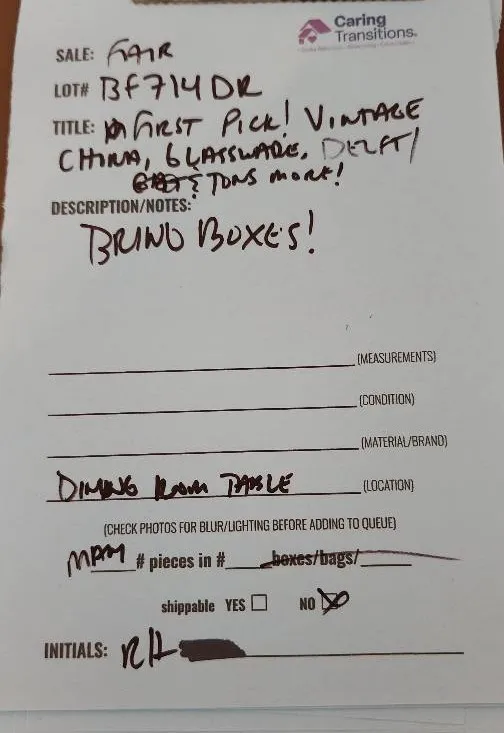 Caring
Transitions.
SALE: FAIR
LOT# BF714DR
TITLE: FIRST PICK! VINTAGE
CHINA, GLASSWARE, DELFT/
TONS MORE!
DESCRIPTION/NOTES:
BRING BOXES!
(MEASUREMENTS)
(CONDITION)
(MATERIAL/BRAND)
DINING ROOM TABLE (LOCATION)
(CHECK PHOTOS FOR BLUR/LIGHTING BEFORE ADDING TO QUEUE)
# pieces in # boxes/bags/
shippable YES NO
INITIALS: RH